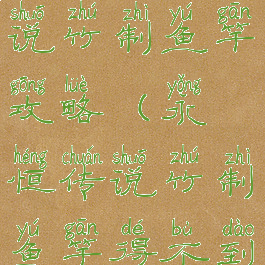 shuō zhú zhì yú gān
说竹制鱼竿
gōng lüè yǒng
攻略（永
héng chuán shuō zhú zhì
恒传说竹制
yú gān dé bù dào
鱼竿得不到